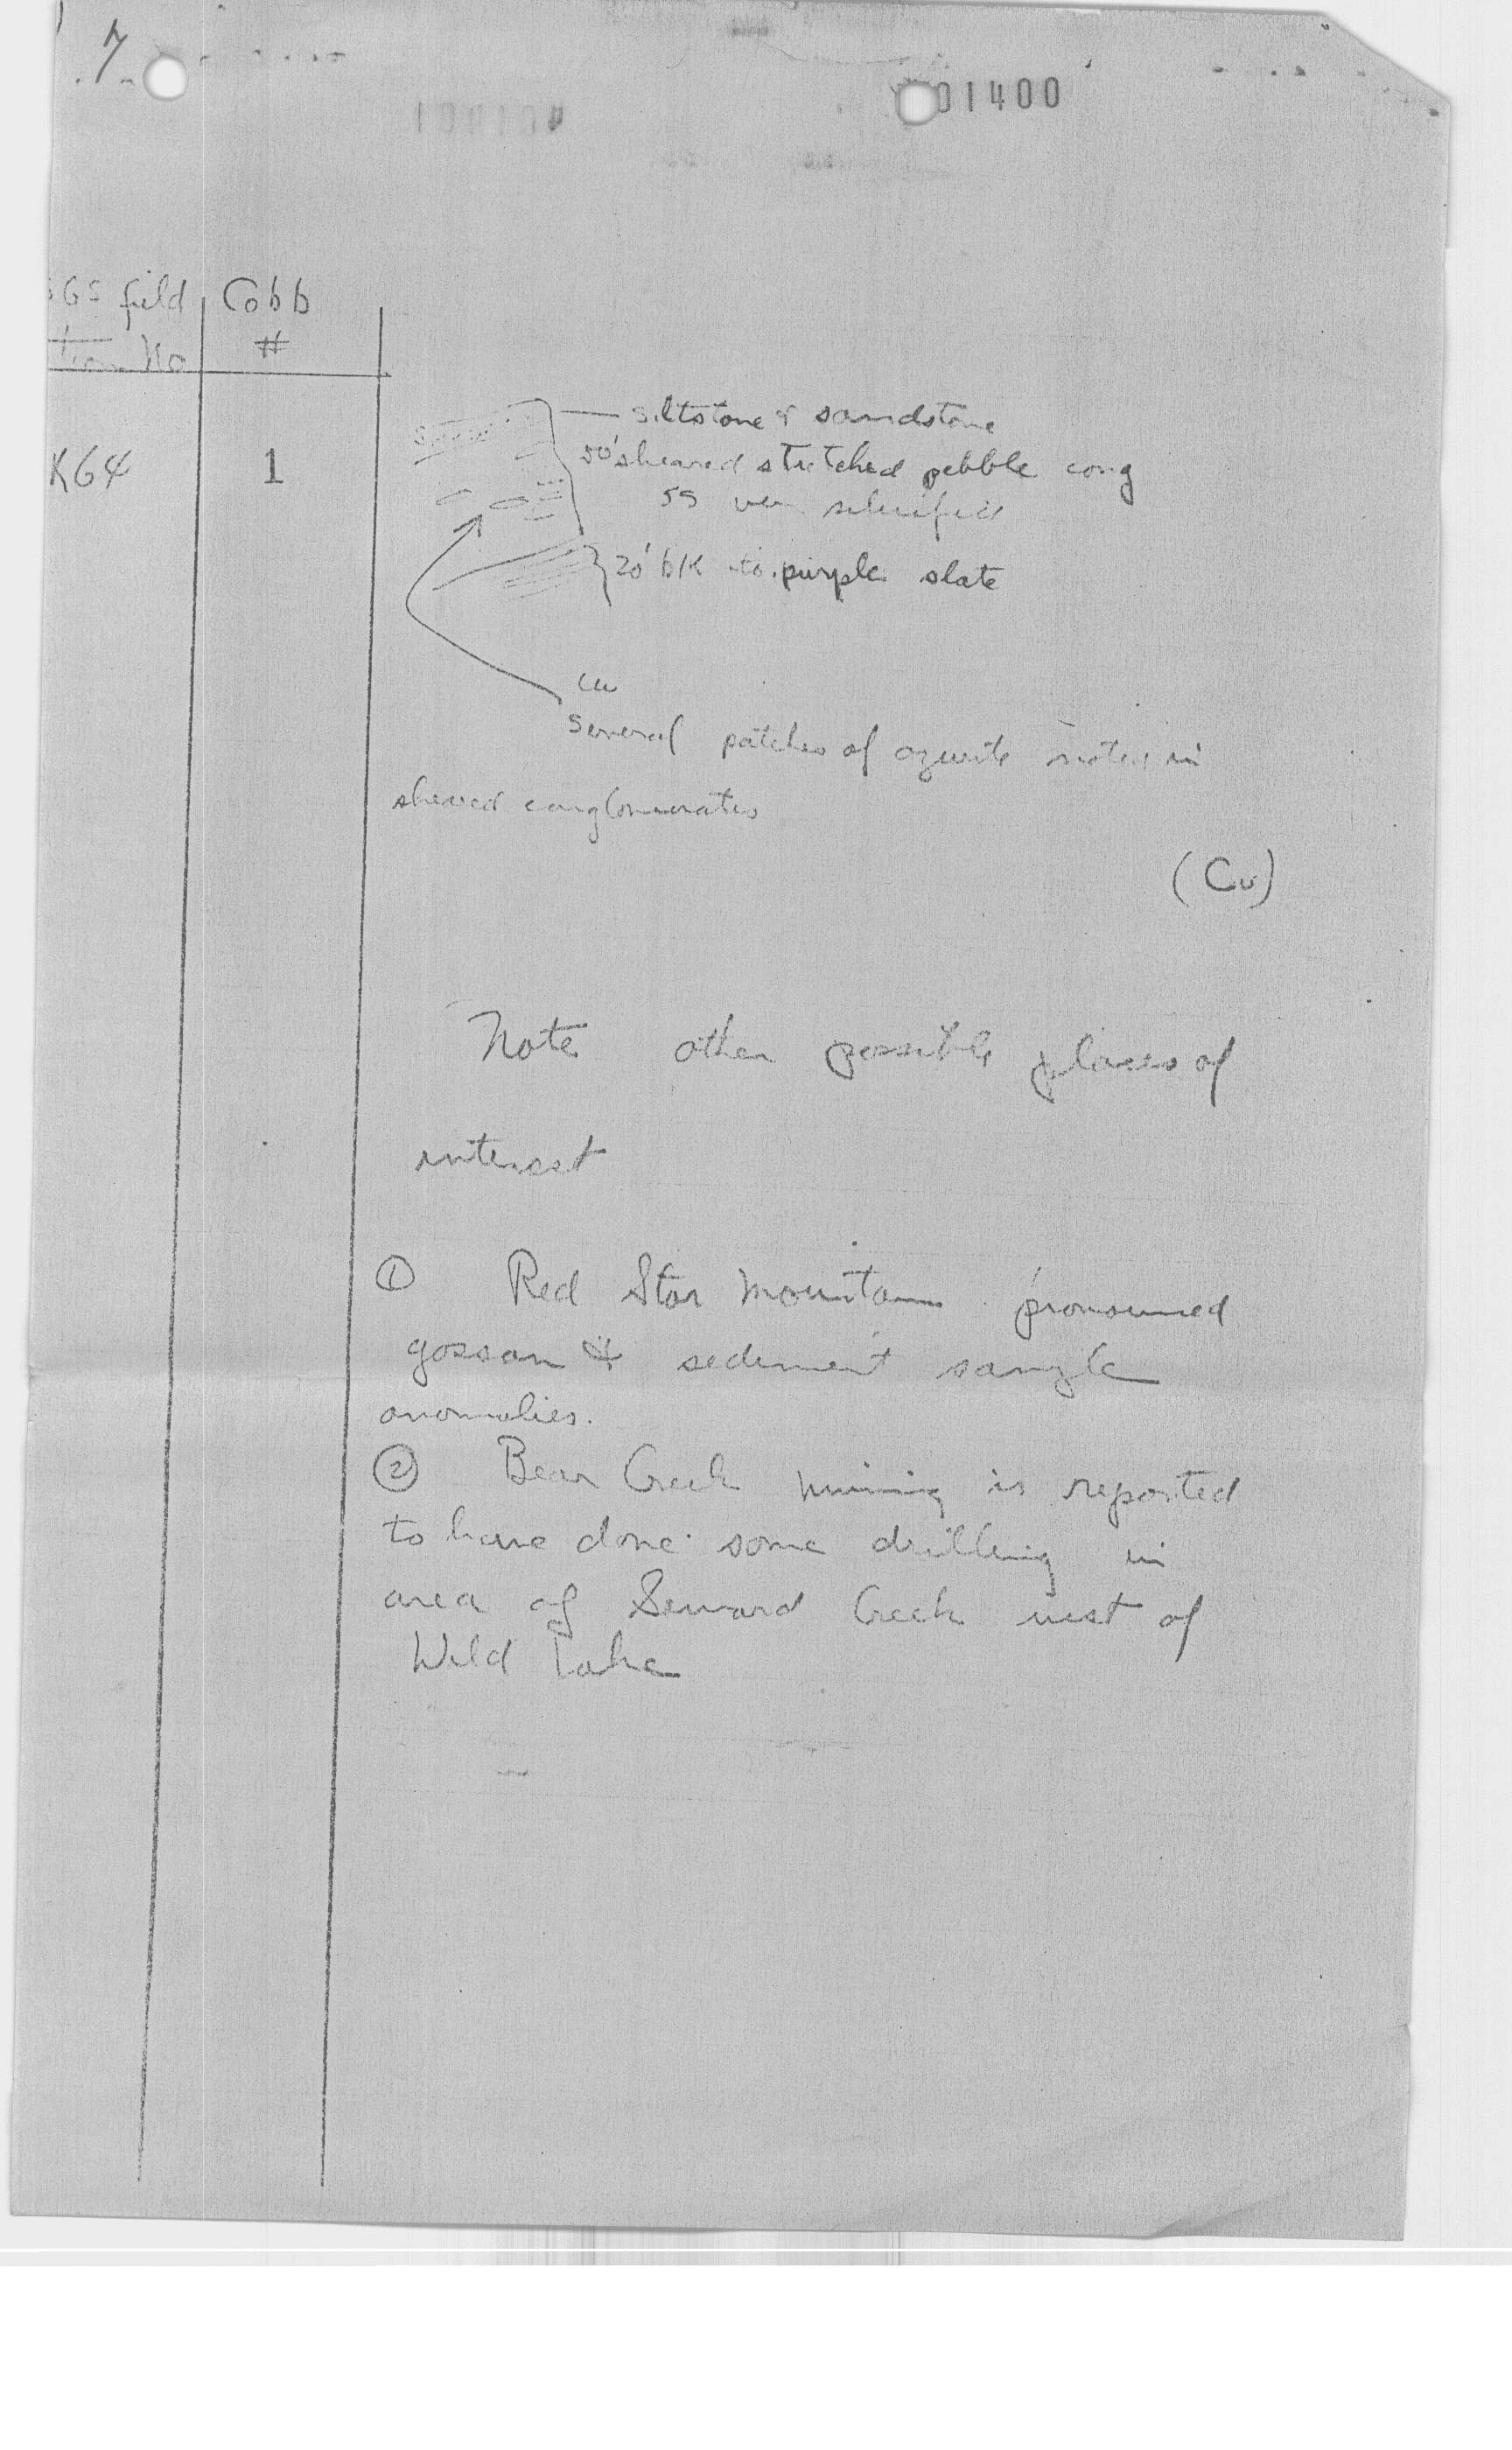 7
01400
GS field
Cobb
#
K64
1
siltstone & sandstone
50' sheared stretched pebble cong
ss silicified
20' blk to purple slate
Cu
Several patches of azurite noted in
sheared conglomerates
(Cu)
Note other possible places of
interest
① Red Star Mountain pronounced
gossan & sediment sample
anomalies.
② Bear Creek Mining is reported
to have done some drilling in
area of Seward Creek west of
Wild Lake